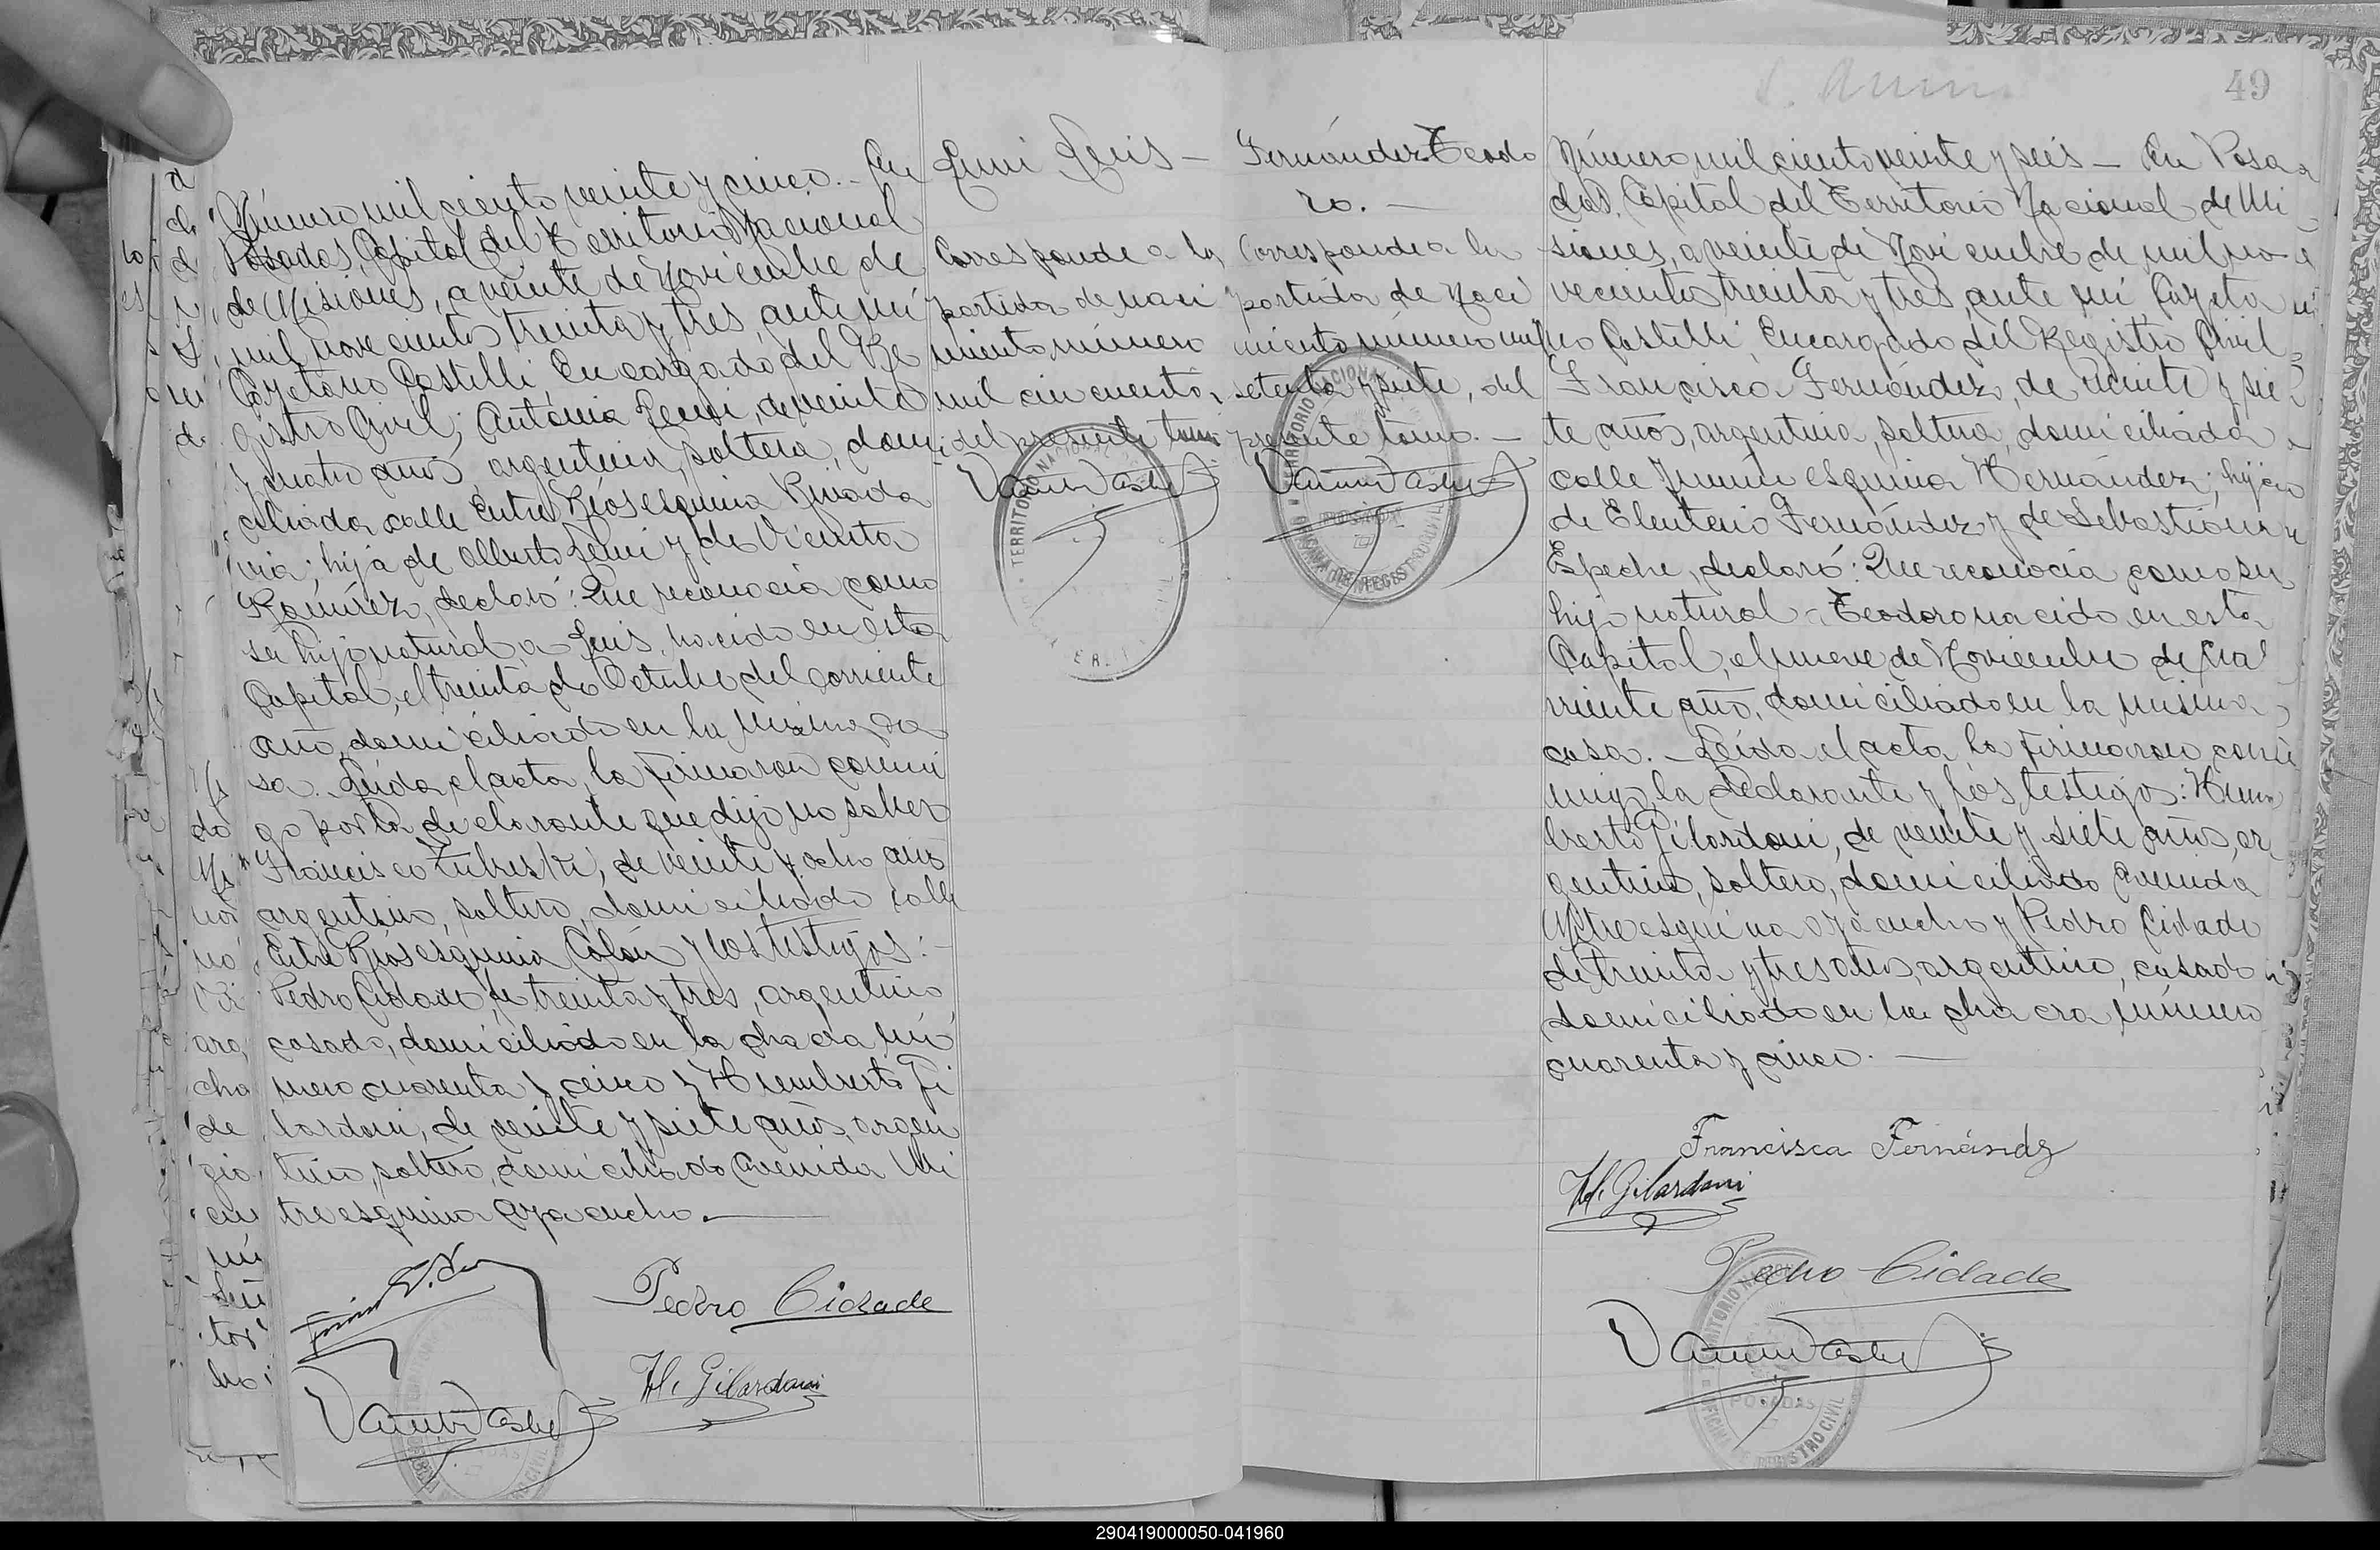 Número mil ciento veinte y cinco.- En
Posadas, Capital del Territorio Nacional
de Misiones, a veinte de Noviembre de
mil novecientos treinta y tres, ante mí
Cayetano Castelli Encargado del Re
gistro Civil; Antonia Lemi, de veinte
y cuatro años, argentina, soltera, domi
ciliada calle Entre Ríos esquina Rivada
via; hija de Alberto Lemi y de Vicenta
Ramírez, declaró: Que reconocía como
su hijo natural a Luis, nacido en esta
Capital, el treinta de Octubre del corriente
año, domiciliado en la misma ca
sa. Leída el acta, la firmaron conmi
go por la declarante que dijo no saber
Francisco de veinte y ocho años
argentino, soltero, domiciliado calle
Entre Ríos esquina Colón y los testigos:
Pedro Cidade, de treinta y tres, argentino
casado, domiciliado en la chacra nú
mero cuarenta y cinco y Humberto Gi
lardoni, de veinte y siete años, argen
tino, soltero, domiciliado Avenida Mi
tre esquina Ayacucho.-
Pedro Cidade
H. Gilardoni
Lemi Luis-
Corresponde a la
partida de naci
miento número
mil cincuenta,
del presente tomo
TERRITORIO NACIONAL
49
Fernández Teodo
ro.-
Corresponde a la
partida de Naci
miento número mil
setenta y siete, del
presente tomo.-
Número mil ciento veinte y seis- En Posa
das, Capital del Territorio Nacional de Mi
siones, a veinte de Noviembre de mil no
vecientos treinta y tres, ante mí, Cayeta
no Castelli, Encargado del Registro Civil
Francisca Fernández, de veinte y sie
te años, argentina, soltera, domiciliada
calle Junín esquina Hernández; hija
de Eleuterio Fernández y de Sebastiana
Espeche, declaró: Que reconocía como su
hijo natural a Teodoro nacido en esta
Capital, el nueve de Noviembre del co
rriente año, domiciliado en la misma
casa.- Leída el acta, la firmaron con
migo, la declarante y los testigos: Hum
berto Gilardoni, de veinte y siete años, ar
gentino, soltero, domiciliado Avenida
Mitre esquina Ayacucho y Pedro Cidade
de treinta y tres años, argentino, casado
domiciliado en la chacra número
cuarenta y cinco.-
Francisca Fernández
H. Gilardoni
Pedro Cidade
POSADAS
290419000050-041960